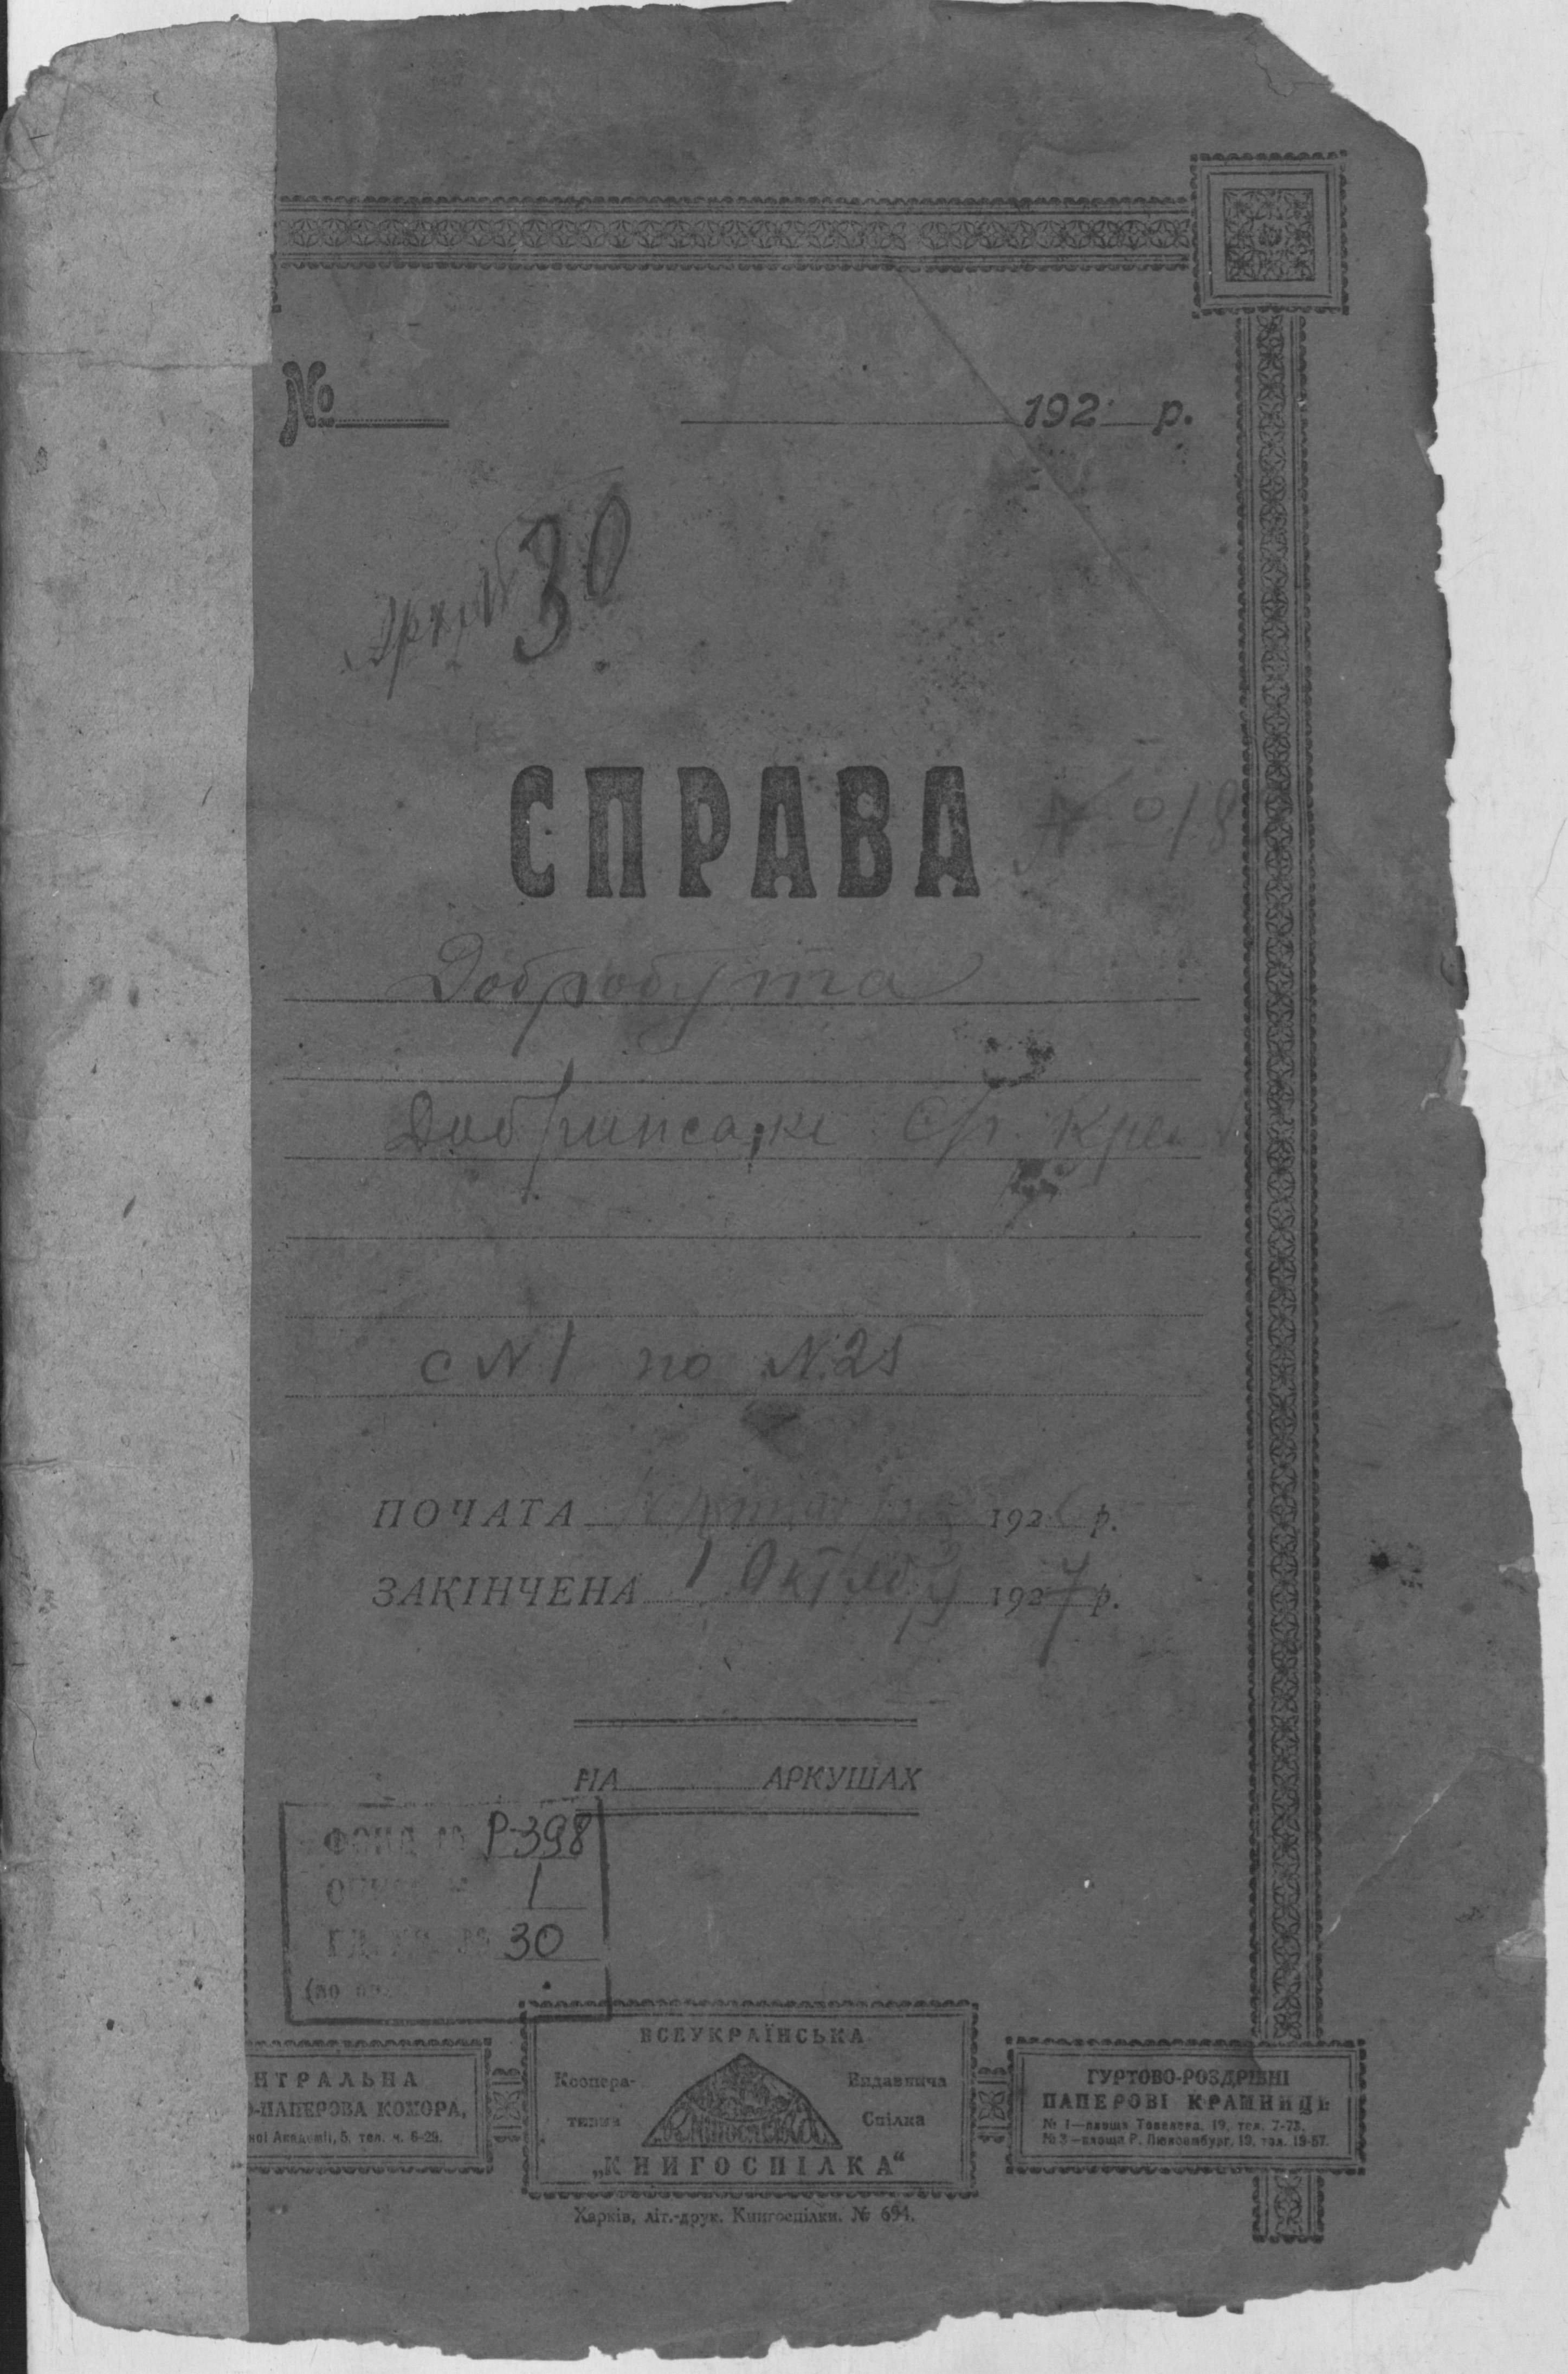 № 192 р.
Арх. № 30
СПРАВА № 18
Добробута
с № 1 по № 25
ПОЧАТА 192 р.
ЗАКІНЧЕНА 1 Октяб 1927 р.
НА АРКУШАХ
ФОНД № Р-398
1
30
НТРАЛЬНА
-ПАПЕРОВА КОМОРА,
ної Академії, 5, тел. ч. 6-29.
ВСЕУКРАЇНСЬКА
Коопера-
тивна
Видавнича
Спілка
Книгоспілка
„КНИГОСПІЛКА“
ГУРТОВО-РОЗДРІБНІ
ПАПЕРОВІ КРАМНИЦІ:
№ 1—площа Тевелева, 19, тел. 7-73.
№ 3—площа Р. Люксембург, 10, тел. 19-57.
Харків, літ.-друк. Книгоспілки. № 694.